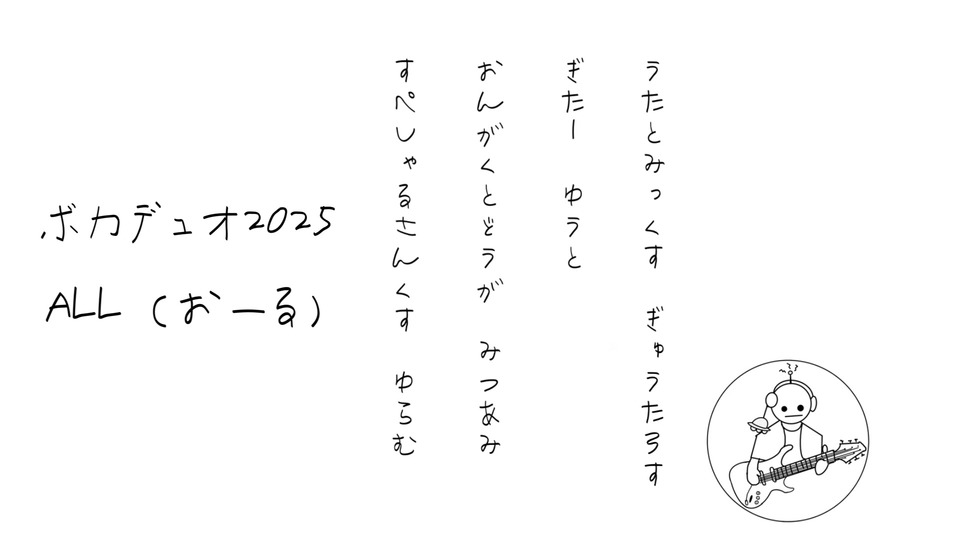 ボカデュオ2025
ALL（おーる）
うたとみっくす　ぎゅうたろす
ぎたー　ゆうと
おんがくとどうが　みつあみ
すぺしゃるさんくす　ゆらむ